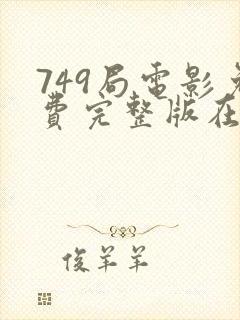 749局電影免
費完整版在
俊羊羊